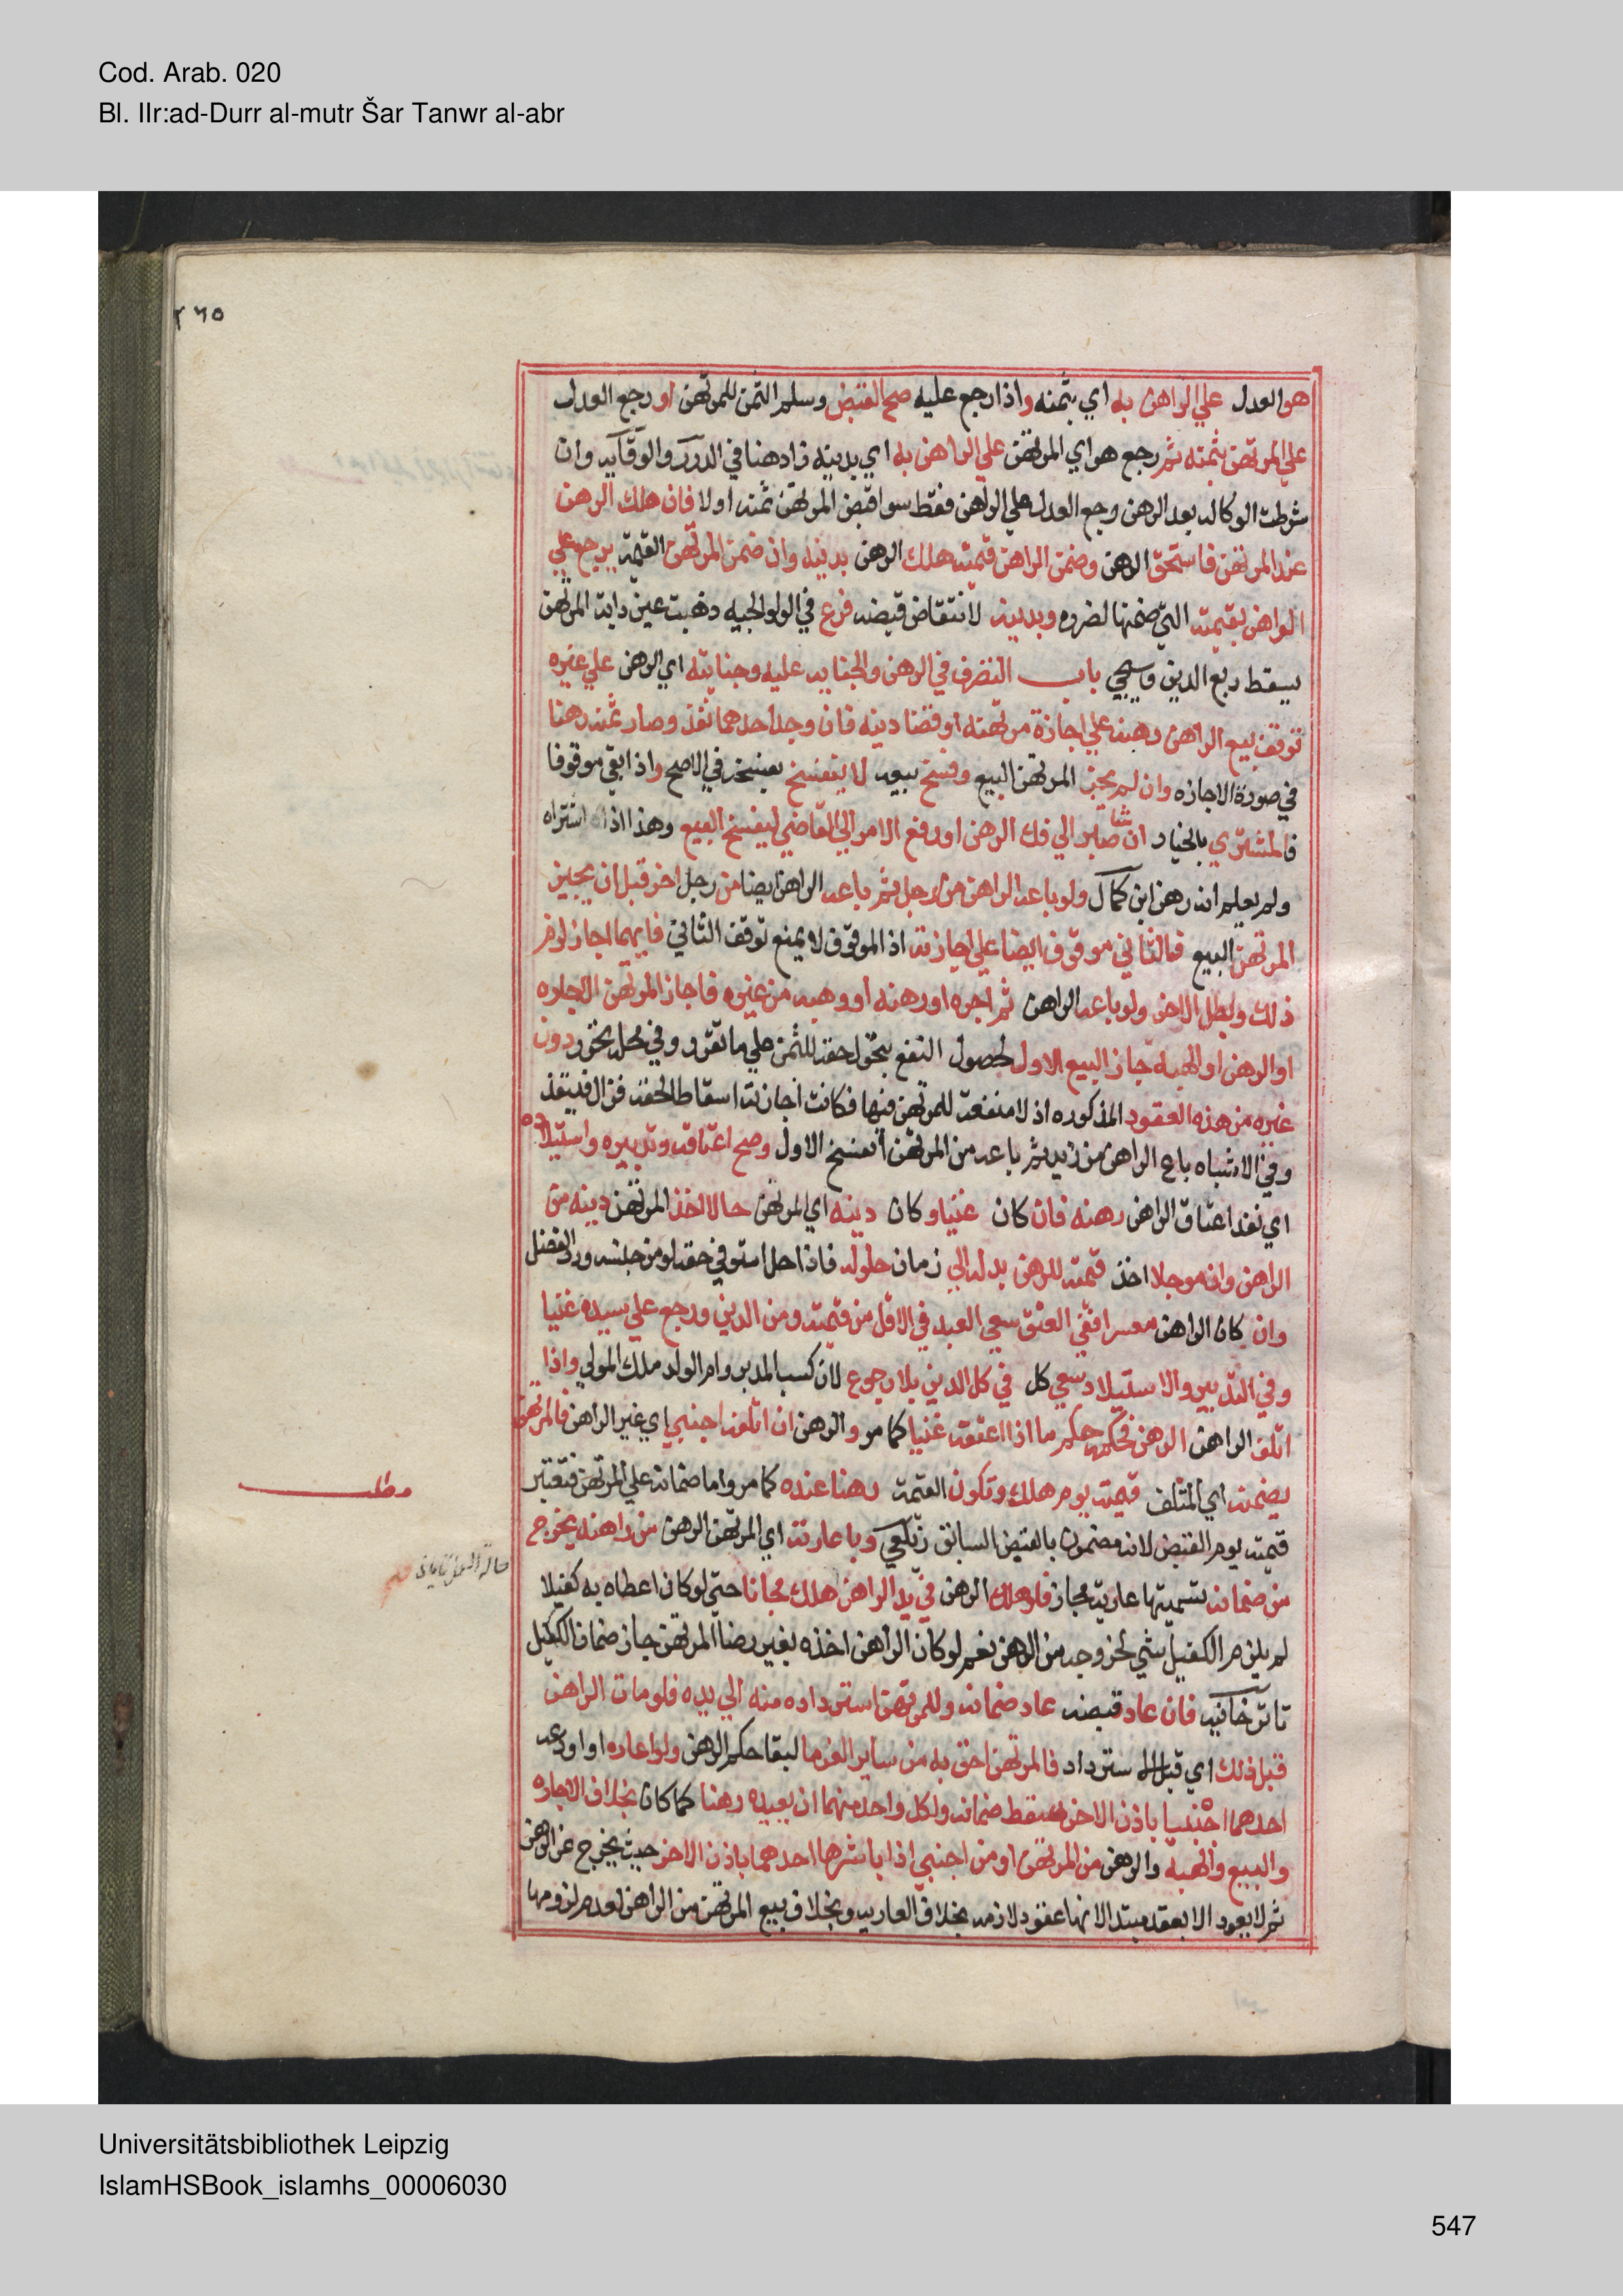 Cod. Arab. 020
Bl. IIr:ad-Durr al-mutr Šar Tanwr al-abr
٢٦٥
هو العدل علي الراهن به اي بثمنه واذا رجع عليه صح القبض وسلم الثمن للمرتهن او رجع العدل
علي المرتهن بثمنه ثم رجع هو اي المرتهن علي الراهن به اي بدينه زاد هنا في الدرر والوقايه وان
شرطت الوكاله بعد الرهن رجع العدل علي الراهن فقط سوا قبض المرتهن ثمنه اولا فان هلك الرهن
عند المرتهن فاستحق الرهن وضمن الراهن قيمته هلك الرهن بدينه وان ضمن المرتهن القيمة يرجع علي
الراهن بقيمته التي ضمنها لضرره وبدينه لانتقاض قبضه فرع في الولوالجيه ذهبت عين دابة المرتهن
يسقط ربع الدين وسيجي باب التصرف في الرهن والجنايه عليه وجنايته اي الرهن علي غيره
توقف بيع الراهن رهنه علي اجازة مرتهنه او قضا دينه فان وجد احدهما نفذ وصار ثمنه رهنا
في صورة الاجازه وان لم يجز المرتهن البيع وفسخ بيعه لا ينفسخ بفسخه في الاصح واذا بقي موقوفا
فالمشتري بالخيار ان شا صابر الي فك الرهن او رفع الامر الي القاضي ليفسخ البيع وهذا اذا اشتراه
ولم يعلم انه رهن ابن كمال ولو باعه الراهن من رجل ثم باعه الراهن ايضا من رجل اخر قبل ان يجيز
المرتهن البيع فالثاني موقوف ايضا علي اجازته اذ الموقوف لا يمنع توقف الثاني فايهما اجاز لزم
ذلك وبطل الاخر ولو باعه الراهن ثم اجره او رهنه او وهبه من غيره فاجاز المرتهن الاجاره
او الرهن او الهبه جاز البيع الاول لحصول النفع بتحول حقه للثمن علي ما تقرر وفي محل تحرر دون
غيره من هذه العقود المذكوره اذ لا منفعة للمرتهن فيها فكانت اجازته اسقاطا لحقه فزال فينفذ
وفي الاشباه باع الراهن من زيد ثم باعه من المرتهن انفسخ الاول وصح اعتاقه وتدبيره واستيلاده
اي نفذ اعتاق الراهن رهنه فان كان غنيا وكان دينه اي المرتهن حالا اخذ المرتهن دينه من
الراهن وان موجلا اخذ قيمته للرهن بدله الي زمان حلوله فاذا حل استوفي حقه لو من جنسه ورد الفضل
وان كان الراهن معسرا ففي العتق سعي العبد في الاقل من قيمته ومن الدين ورجع علي سيده غنيا
وفي التدبير والاستيلاد سعي كل في كل الدين بلا رجوع لان كسب المدبر وام الولد ملك المولي واذا
اتلف الراهن الرهن فحكمه حكم ما اذا اعتقه غنيا كما مر والرهن ان اتلفه اجنبي اي غير الراهن فالمرتهن
يضمنه اي المتلف قيمته يوم هلك وتكون القيمة رهنا عنده كما مر واما ضمانه علي المرتهن فتعتبر
قيمته يوم القبض لانه مضمون بالقبض السابق زيلعي وباعارته اي المرتهن الرهن من راهنه يخرج
من ضمانه تسميتها عارية مجاز فلو هلك الرهن في يد الراهن هلك مجانا حتى لو كان اعطاه به كفيلا
لم يلزم الكفيل شي لخروجه من الرهن نعم لو كان الراهن اخذه بغير رضا المرتهن جاز ضمان الكفيل
تاترخانيه فان عاد قبضه عاد ضمانه وللمرتهن استرداده منه الي يده فلو مات الراهن
قبل ذلك اي قبل الاسترداد فالمرتهن احق به من ساير الغرما لبقا حكم الرهن ولو اعاره او اودعه
احدهما اجنبيا باذن الاخر سقط ضمانه ولكل واحد منهما ان يعيده رهنا كما كان بخلاف الاجاره
والبيع والهبه والرهن من المرتهن او من اجنبي اذا باشرها احدهما باذن الاخر حيث يخرج عن الرهن
ثم لا يعود الا بعقد مبتدا لانها عقود لازمه بخلاف العاريه وبخلاف بيع المرتهن من الراهن لعدم لزومها
مطلب
Universitätsbibliothek Leipzig
IslamHSBook_islamhs_00006030
547